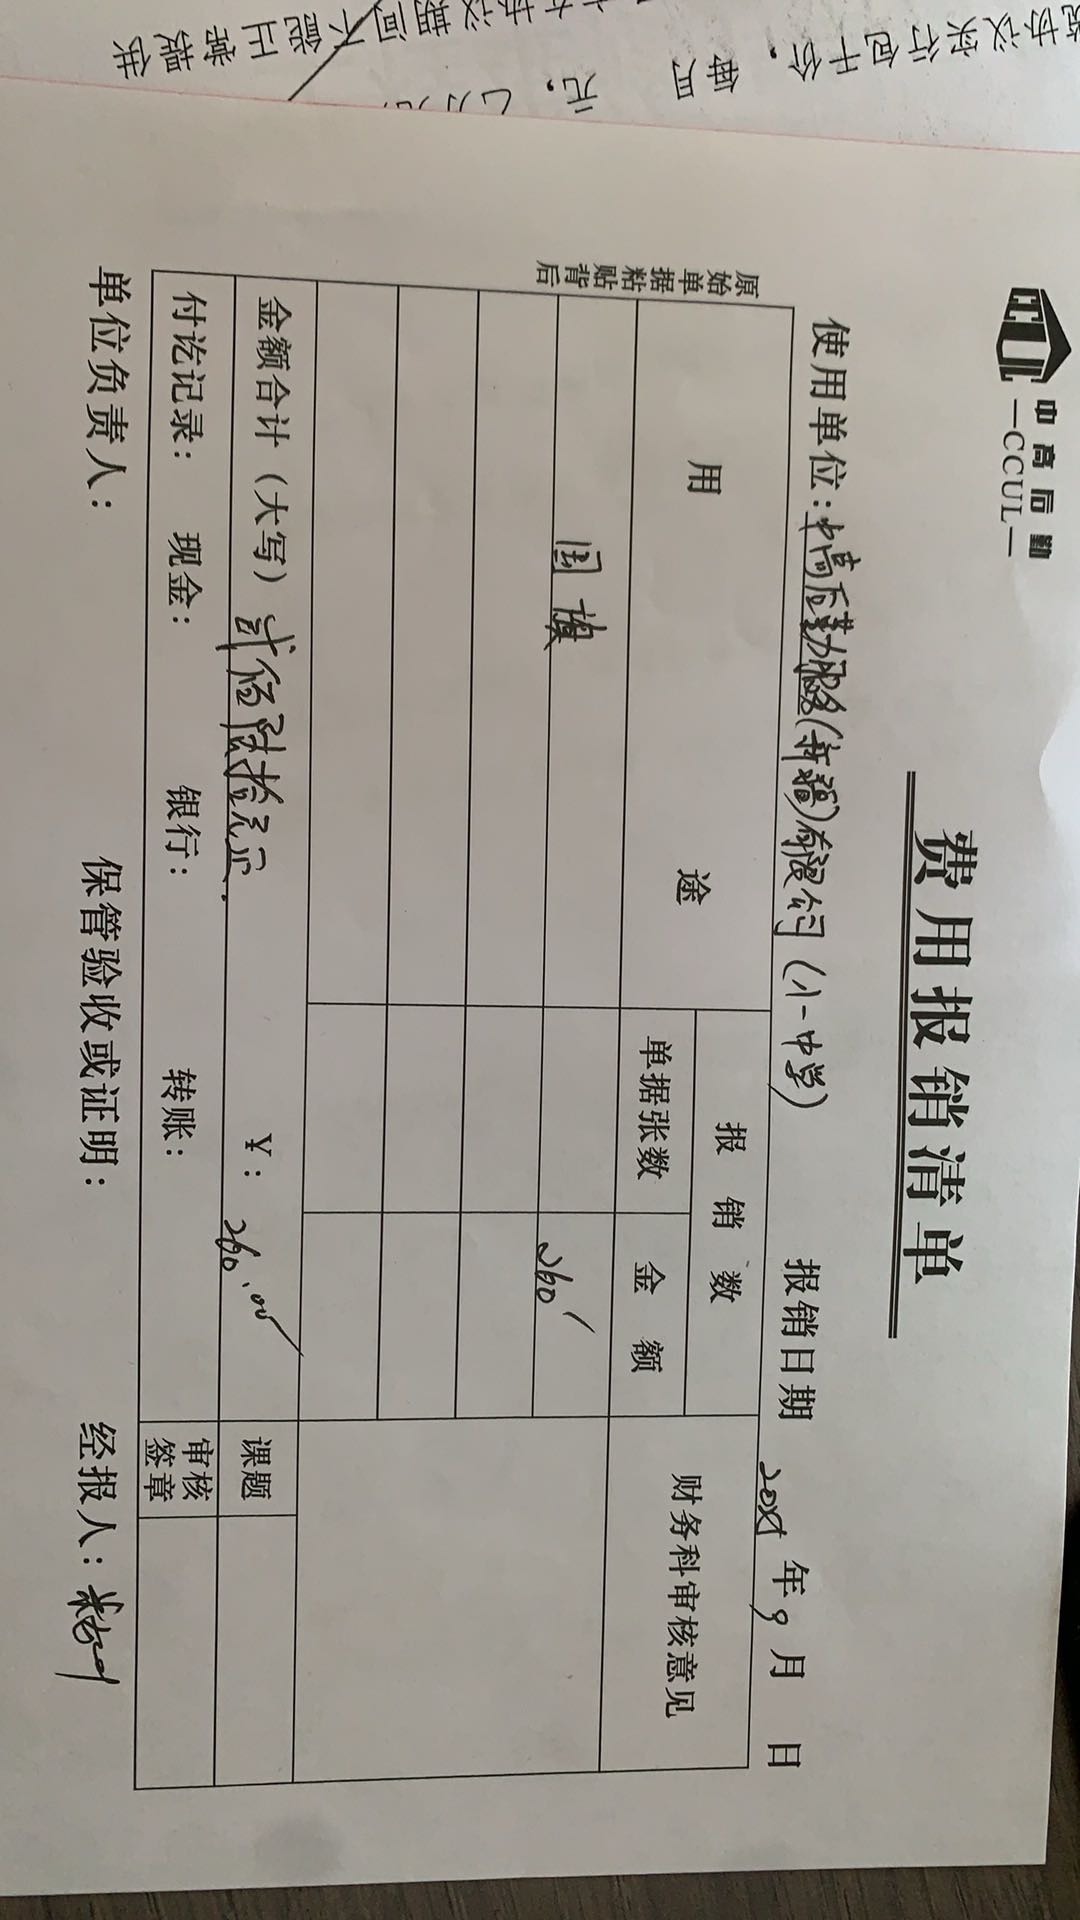 中高后勤
—CCUL—
费用报销清单
使用单位：中高后勤服务(新疆)有限公司(八一中学) 报销日期 年9月 日
原始单据粘贴背后
用途 报销数 财务科审核意见
单据张数 金额
国旗 260
金额合计（大写）贰佰陆拾元 ￥：260.00 课题
付讫记录： 现金： 银行： 转账： 审核签章
单位负责人： 保管验收或证明： 经报人：
协议实行包干价，每月 元，
协议期间不能正常提供